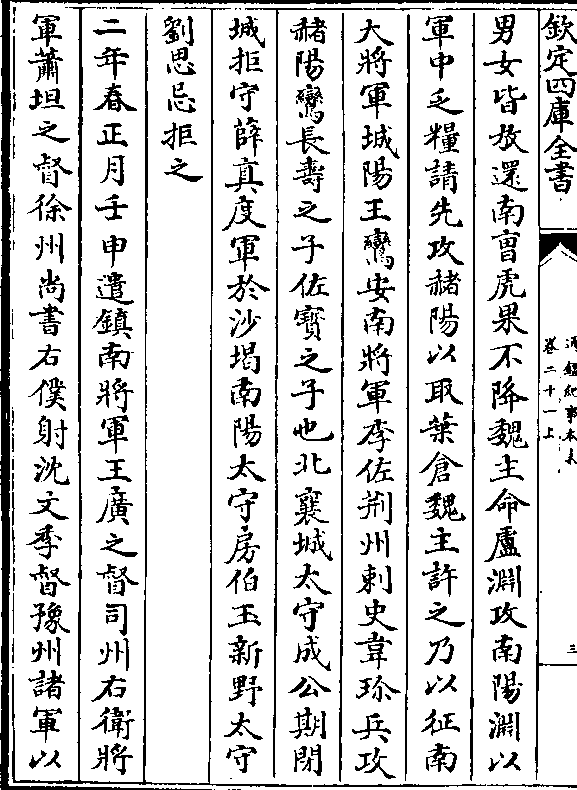 欽定四庫全書
通鑑紀事本末
卷二十一上
三
男女皆放還南曹虎果不降魏主命盧淵攻南陽淵以
軍中乏糧請先攻赭陽以取葉倉魏主許之乃以征南
大將軍城陽王鸞安南將軍李佐荆州刺史韋珍兵攻
赭陽鸞長壽之子佐寶之子也北襄城太守成公期閉
城拒守薛真度軍於沙堨南陽太守房伯玉新野太守
劉思忌拒之
二年春正月壬申遣鎮南將軍王廣之督司州右衛將
軍蕭坦之督徐州尚書右僕射沈文季督豫州諸軍以